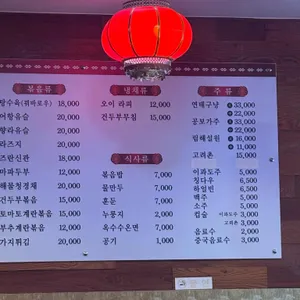 볶음류
탕수육(꿔바로우) 18,000
어향유슬 20,000
향라유슬 20,000
라즈지 20,000
즈란신관 18,000
마파두부 12,000
해물청경채 20,000
건두부볶음 15,000
토마토계란볶음 15,000
부추계란볶음 12,000
가지튀김 20,000
냉채류
오이 라피 12,000
건두부무침 15,000
식사류
볶음밥 7,000
물만두 7,000
훈둔 7,000
누룽지 2,000
옥수수온면 7,000
공기 1,000
주 류
연태구냥 33,000
22,000
공보가주 33,000
22,000
설원 16,000
11,000
고려촌 15,000
이과도주 5,000
칭다우 6,500
하얼빈 6,000
맥주 5,000
소주 5,000
컵술 이과도주 3,000
고려촌 3,000
음료수 2,000
중국음료수 3,000